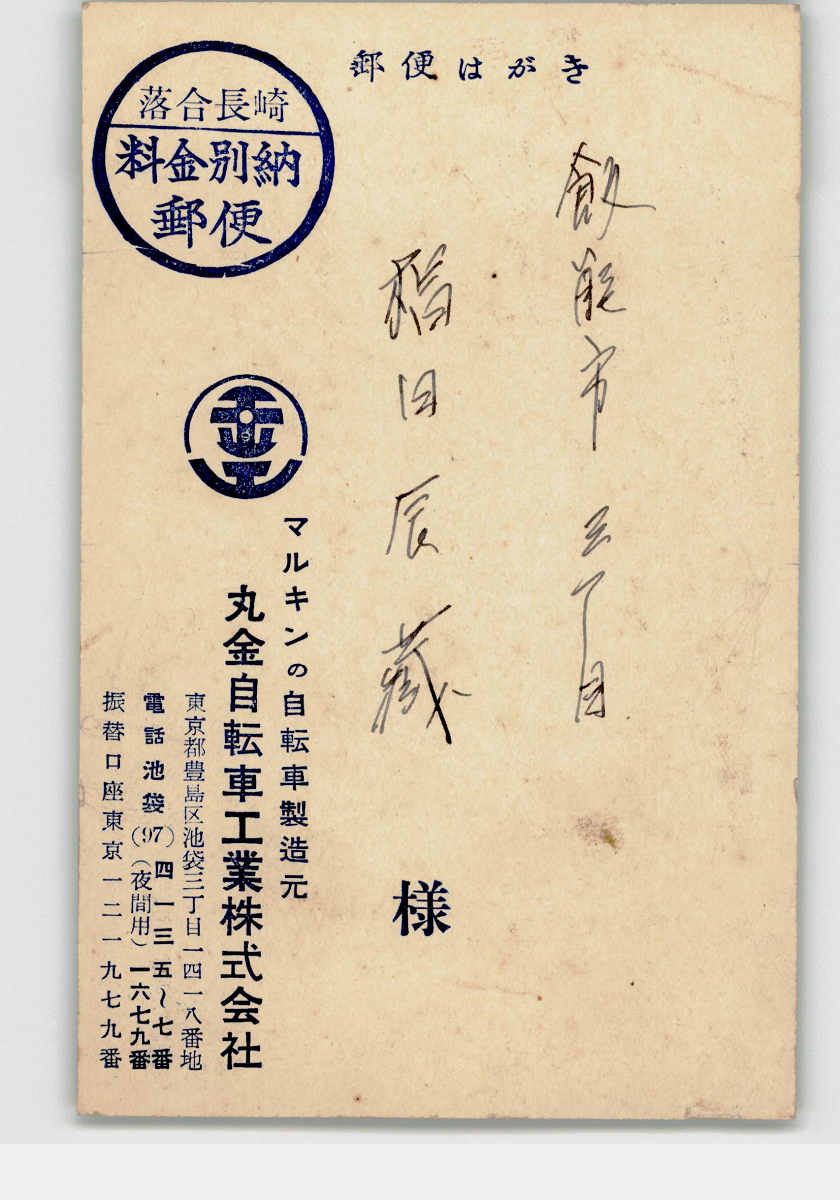 郵便はがき
落合長崎
料金別納
郵便
飯能市 三丁目
稲田辰蔵
様
マルキンの自転車製造元
丸金自転車工業株式会社
東京都豊島区池袋三丁目一四一八番地
電話池袋(97)四一三五~七番
(夜間用)一六七九番
振替口座東京一二一九七九番